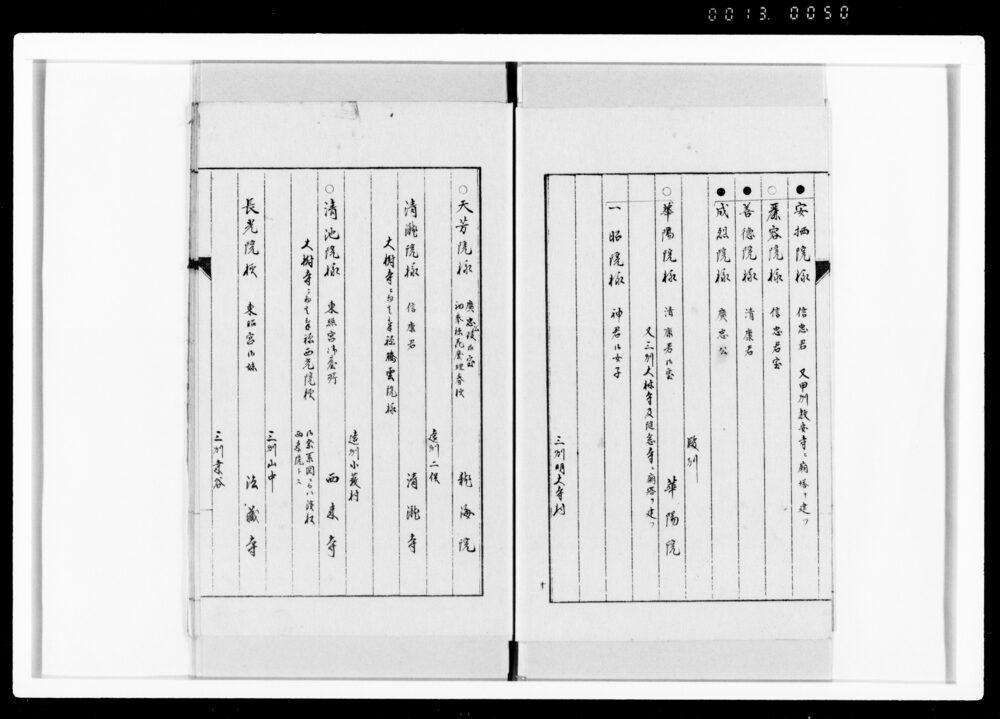 0013. 0050
● 安栖院様 信忠君 又甲州教安寺ニ廟塔ヲ建ツ
○ 慶容院様 信忠君室
● 善徳院様 清康君
● 成烈院様 廣忠公
駿州
○ 華陽院様 清康君御室 華陽院
又三州大林寺及随念寺ニ廟塔ヲ建ツ
一昭院様 神君御女子
三州明大寺村
○ 天芳院様 廣忠後御室 龍海院
遠州二俣
清瀧院様 信康君 清瀧寺
大樹寺ニ而者 騰雲院様
遠州小藪村
○ 清池院様 東照宮御台所 西来寺
大樹寺ニ而者 西光院様
三州山中
長光院様 東照宮御妹 法蔵寺
三州桑谷